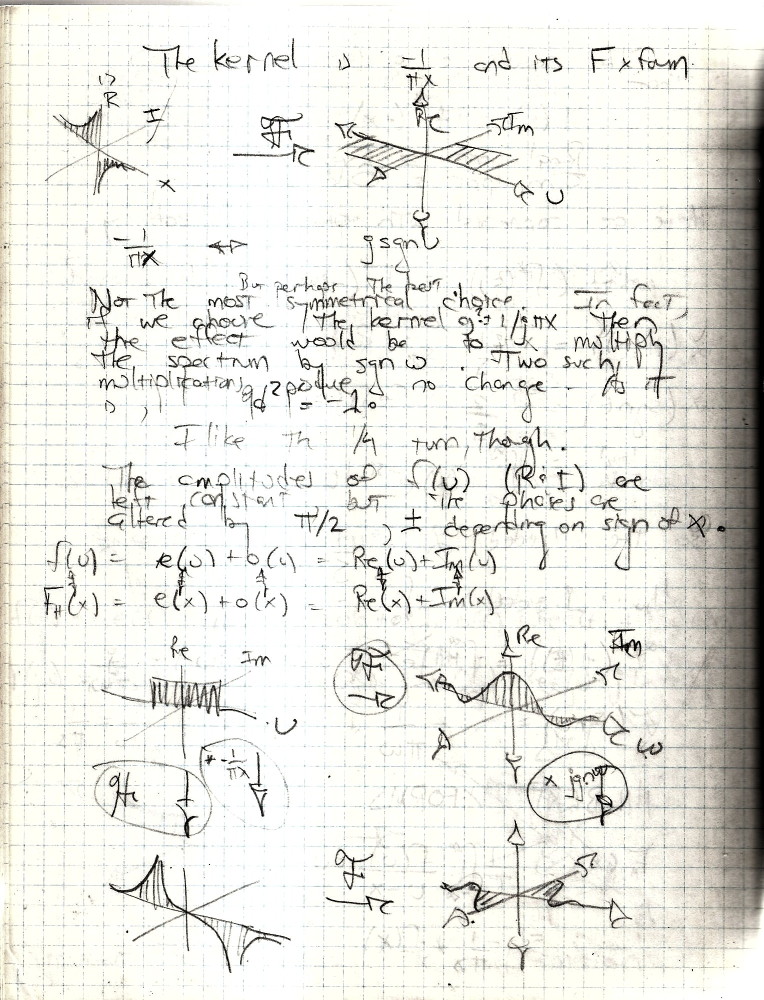 The kernel is -1/πx and its F xform
R I x
F
Re Im U
-1/πx ↔ j sgn U
But perhaps The best
Not The most symmetrical choice. In fact,
if we choose / The kernel 1/jπx Then
the effect would be to multiply
the spectrum by sgn ω. Two such
multiplications produce no change. As it
is, j² = -1.
I like th 1/4 turn, though.
The amplitudes of f(u) (R: I) are
left constant, but the phases are
altered by π/2, ± depending on sign of x.
f(u) = e(u) + o(u) = Re(u) + Im(u)
F_H(x) = e(x) + o(x) = Re(x) + Im(x)
Re Im U
F
Re Im ω
H
* -1/πx
x j sgn ω
F